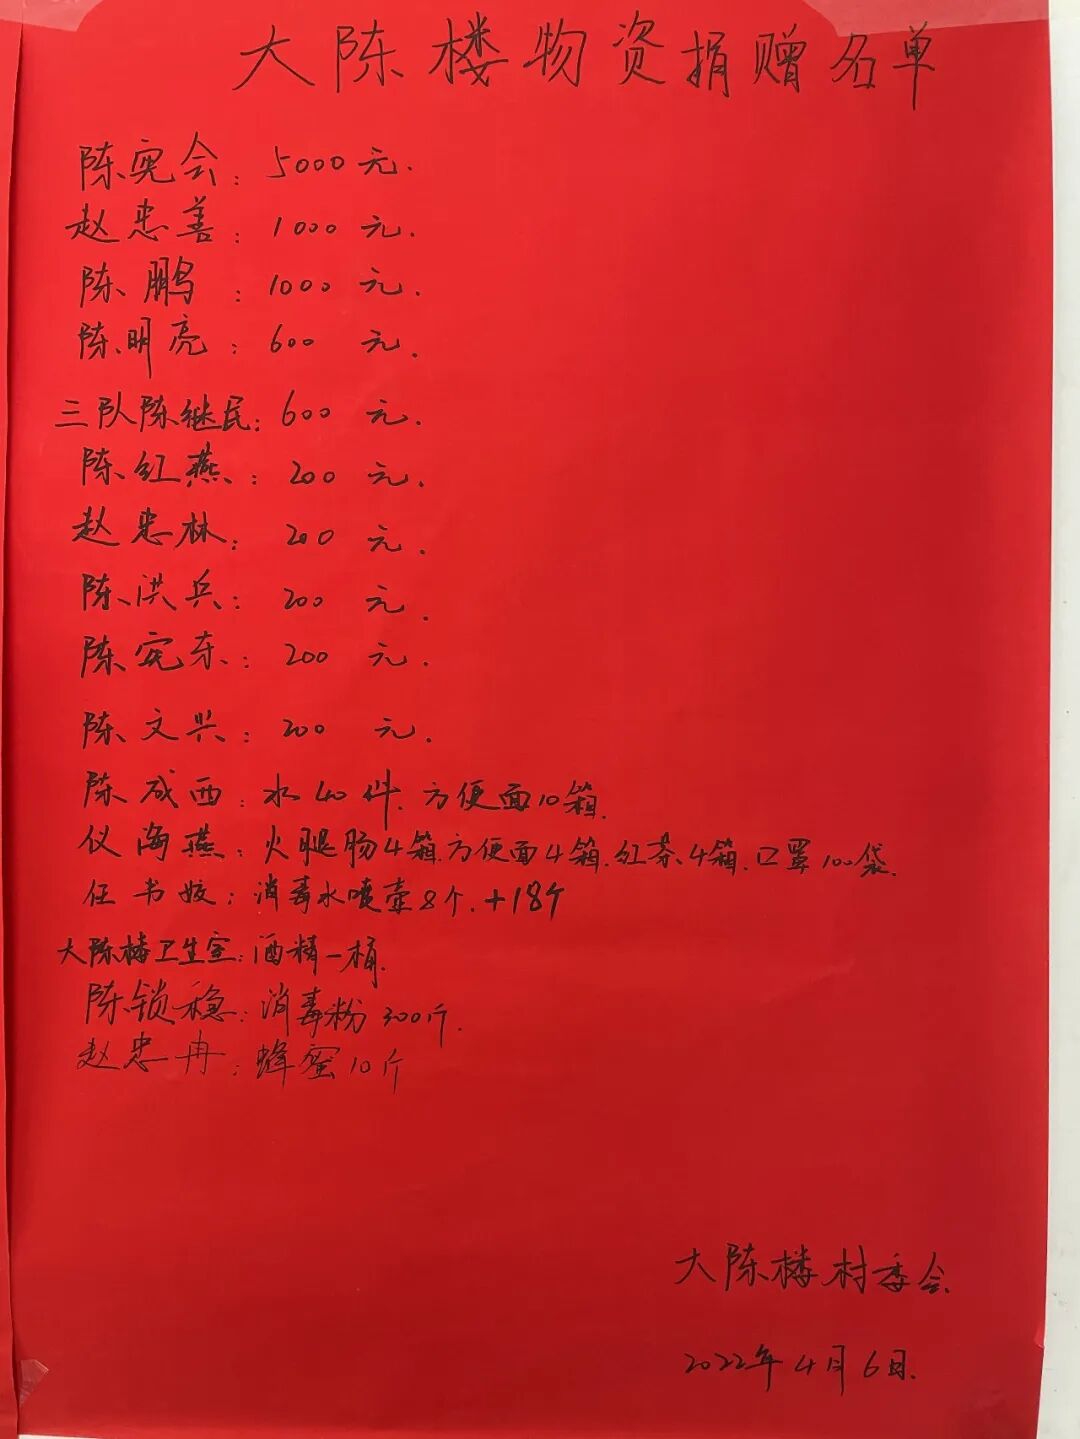 大陈楼物资捐赠名单
陈宪会：5000元.
赵忠善：1000元.
陈鹏：1000元.
陈明亮：600元.
三队陈继民：600元.
陈红燕：200元.
赵忠林：200元.
陈洪兵：200元.
陈宪东：200元.
陈文兴：200元.
陈成西：水40件.方便面10箱.
仪海燕：火腿肠4箱.方便面4箱.红茶4箱.口罩100袋.
任书姣：消毒水喷壶8个.+18个
大陈楼卫生室：酒精一桶.
陈锁稳：消毒粉300斤.
赵忠冉：蜂蜜10斤
大陈楼村委会.
2022年4月6日.